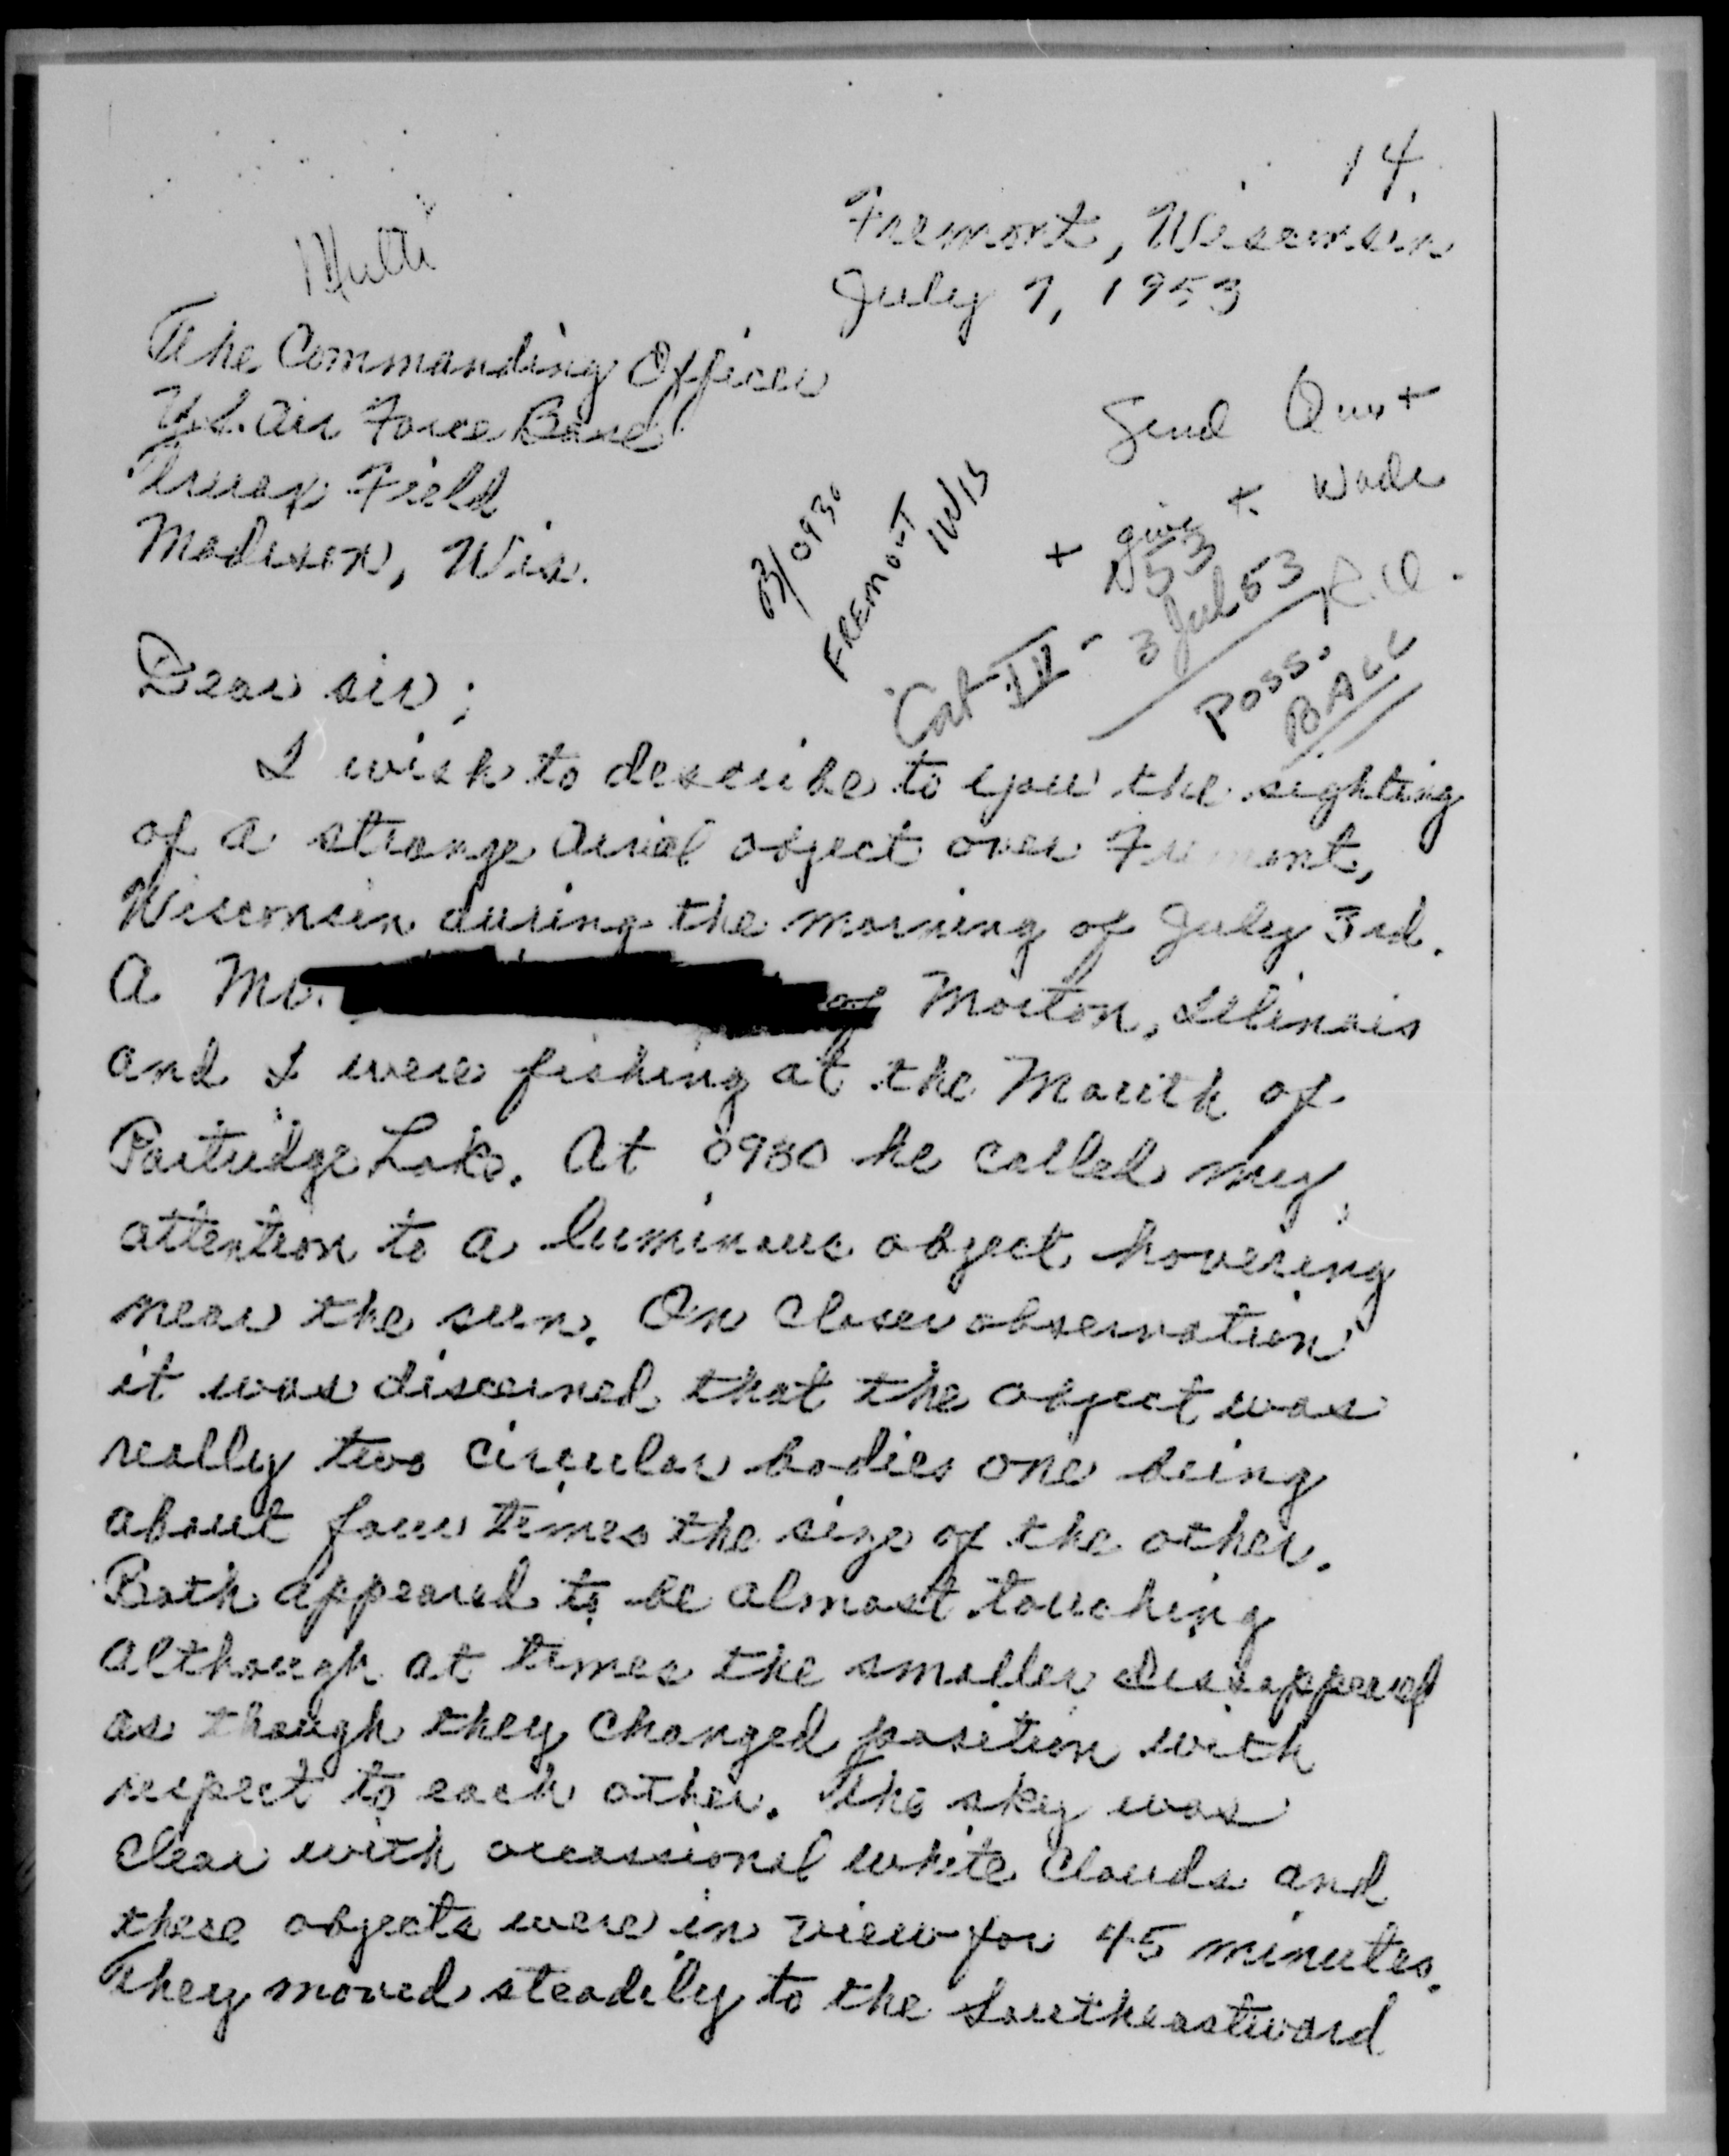 14.
Fremont, Wisconsin
July 7, 1953
The Commanding Officer
U.S. Air Force Base
Truax Field
Madison, Wis.
Send
+ give to Wade
03/0930
FREMONT
WIS
N53
3 Jul 53
Cat IV -
Poss.
BALL
Dear sir;
I wish to describe to you the sighting
of a strange aerial object over Fremont,
Wisconsin during the morning of July 3rd.
A Mr. of Morton, Illinois
and I were fishing at the Mouth of
Partridge Lake. At 0930 he called my
attention to a luminous object hovering
near the sun. On closer observation
it was discerned that the object was
really two circular bodies one being
about four times the size of the other.
Both appeared to be almost touching
although at times the smaller dissappeared
as though they changed position with
respect to each other. The sky was
clear with occassional white clouds and
these objects were in view for 45 minutes.
They moved steadily to the Southeastward